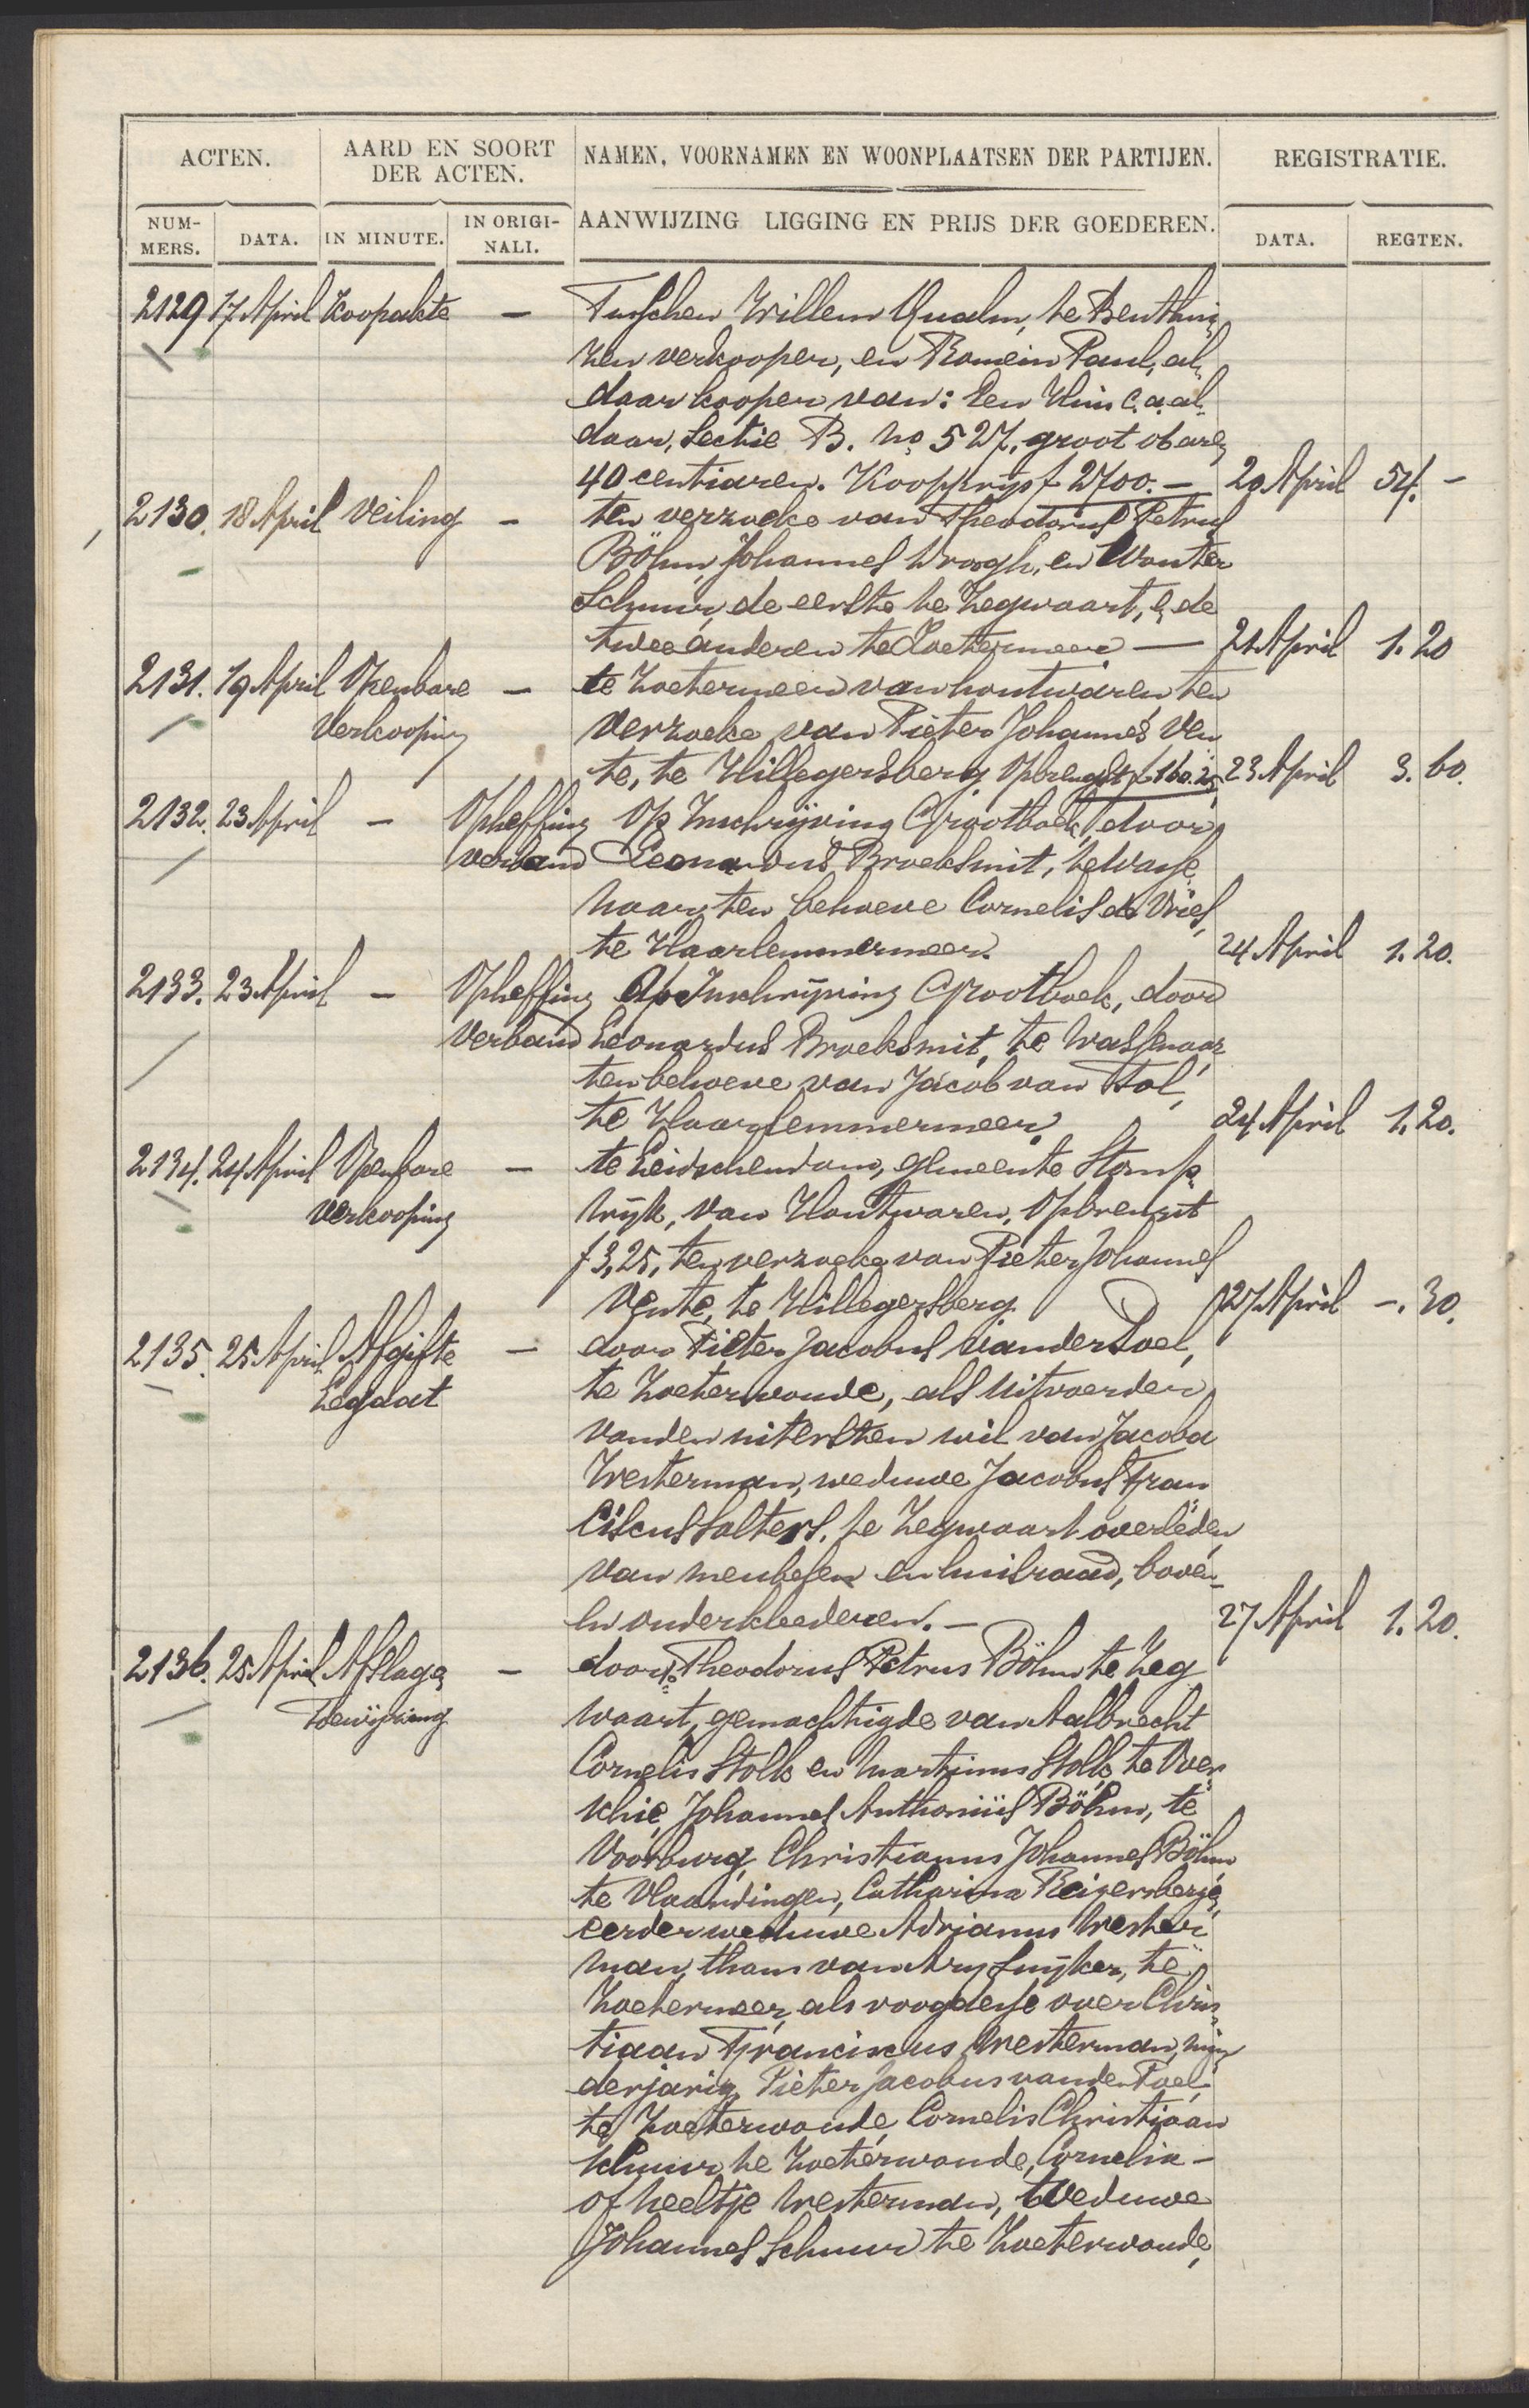 ACTEN. AARD EN SOORT DER ACTEN. NAMEN, VOORNAMEN EN WOONPLAATSEN DER PARTIJEN. REGISTRATIE.
NUM-MERS. DATA. IN MINUTE. IN ORIGI-NALI. AANWIJZING LIGGING EN PRIJS DER GOEDEREN. DATA. REGTEN.
2129 17 April Koopakte — Tusschen Willem Qualm, te Benthui
zen verkooper, en Romein Paul, al
daar kooper van: Een Huis c.a. al
daar, Sectie B. no 527, groot 06 aren
40 centiaren. Koopprijs f 2700.— 20 April 54. —
2130. 18 April Veiling — ten verzoeke van Theodorus Petrus
Böhm, Johannes Droogh, en Wouter
Schuur, de eerste te Zegwaart, & de
twee anderen te Zoetermeer — 21 April 1. 20
2131. 19 April Openbare — te Zoetermeer van houtwaren, ten
Verkooping verzoeke van Pieter Johannes Ven
te, te Hillegersberg. Opbrengst f 160.25 23 April 3. 60.
2132. 23 April — Opheffing Op Inschrijving Grootboek, door
verband Leonardus Broeksmit, te Wasse
naar, ten behoeve Cornelis de Vries,
te Haarlemmermeer. 24 April 1. 20.
2133. 23 April — Opheffing Op Inschrijving Grootboek, door
Verband Leonardus Broeksmit, te Wassenaar,
ten behoeve van Jacob van Tol,
te Haarlemmermeer. 24 April 1. 20.
2134. 24 April Openbare — te Leidschendam, gemeente Stomp
verkooping wijk, van Houtwaren. Opbrengst
f 3,25, ten verzoeke van Pieter Johannes
Vente, te Hillegersberg. 27 April —. 30.
2135. 25 April Afgifte — door Pieter Jacobus van der Poel,
Legaat te Zoeterwoude, als uitvoerder
van den uitersten wil van Jacoba
Westerman, weduwe Jacobus Fran
ciscus Salters, te Zegwaart overleden,
van meubelen en huisraad, boven-
en onderkleederen. — 27 April 1. 20.
2136. 25 April Afslag & — door Theodorus Petrus Böhm te Zeg
Toewijzing waart, gemachtigde van Aalbrecht
Cornelis Stolk en Martinus Stolk, te Over
schie, Johannes Anthonius Böhm, te
Voorburg, Christianus Johannes Böhm
te Vlaardingen, Catharina Reigersberg,
eerder weduwe Adrianus Wester
man, thans van Ary Suijker, te
Zoetermeer, als voogdesse over Chris
tiaan Franciscus Westerman, min
derjarig, Pieter Jacobus van der Poel
te Zoeterwoude, Cornelis Christiaan
Schuur te Zoeterwoude, Cornelia —
of Neeltje Westerman, Weduwe
Johannes Schuur te Zoeterwoude,